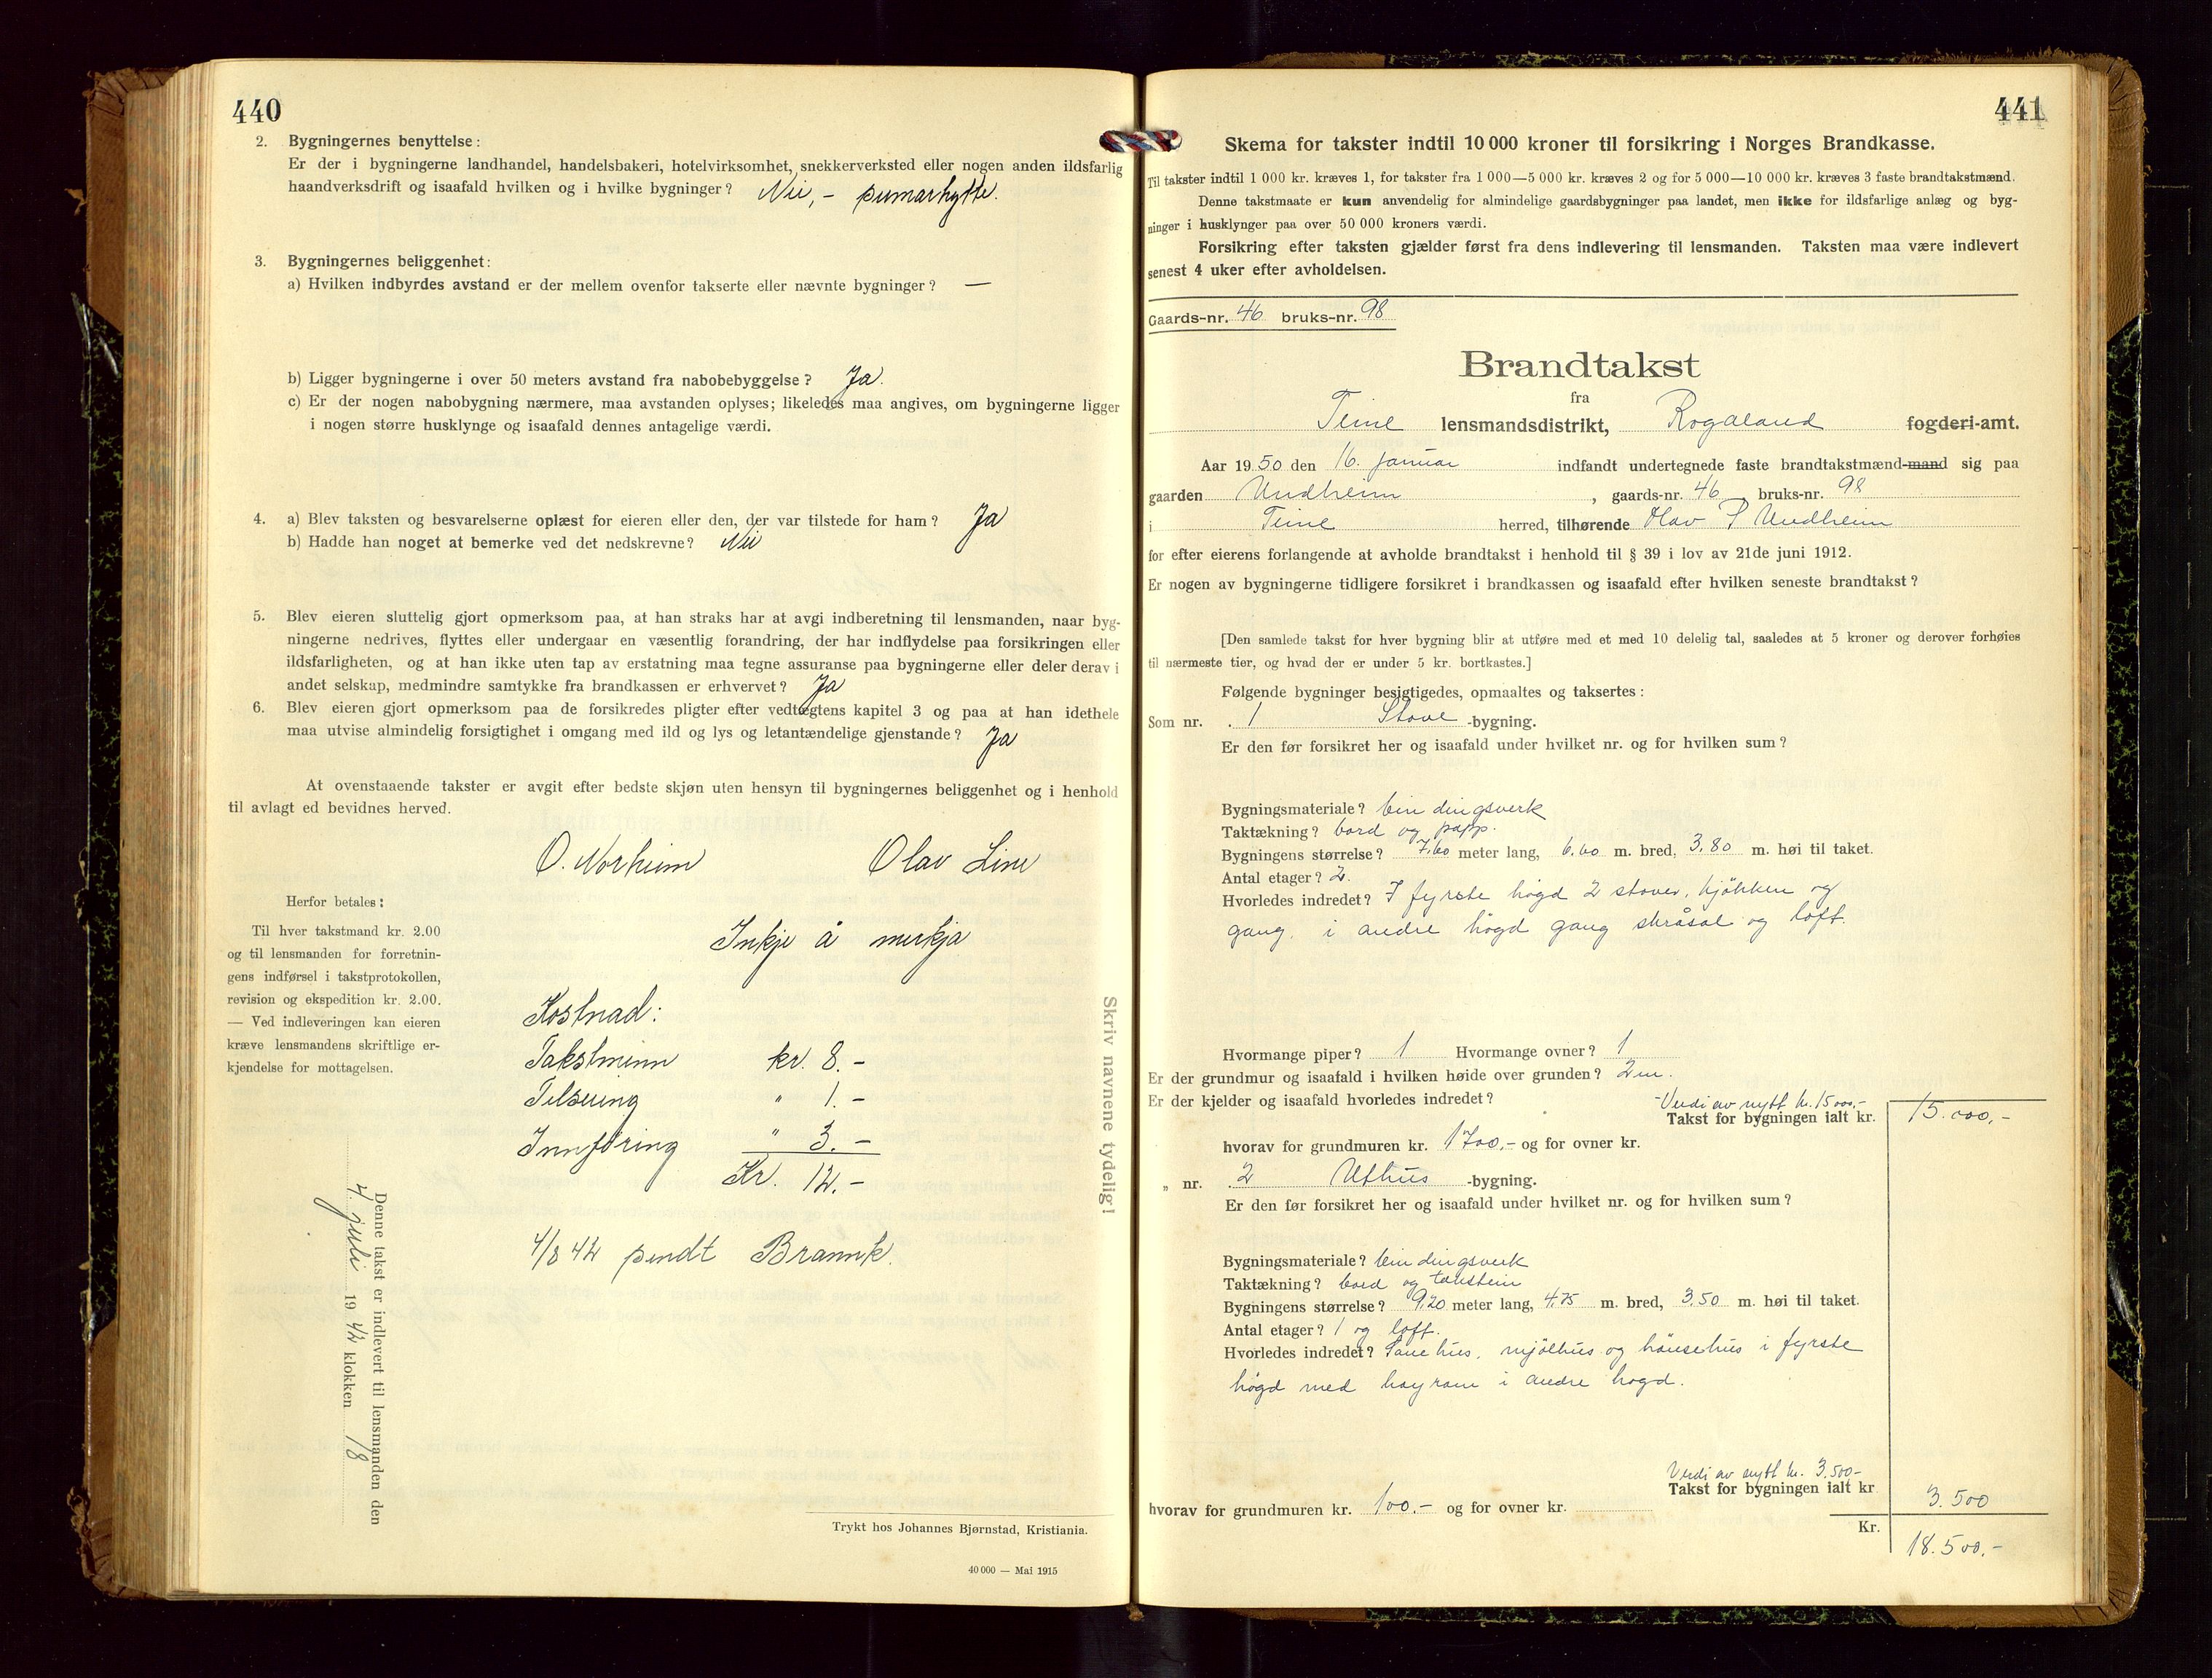 440
2. Bygningernes benyttelse:
Er der i bygningerne landhandel, handelsbakeri, hotelvirksomhet, snekkerverksted eller nogen anden ildsfarlig
haandverksdrift og isaafald hvilken og i hvilke bygninger? Nei, - sumarhytte.
3. Bygningernes beliggenhet:
a) Hvilken indbyrdes avstand er der mellem ovenfor takserte eller nævnte bygninger? —
b) Ligger bygningerne i over 50 meters avstand fra nabobebyggelse? Ja.
c) Er der nogen nabobygning nærmere, maa avstanden oplyses; likeledes maa angives, om bygningerne ligger
i nogen større husklynge og isaafald dennes antagelige værdi.
4. a) Blev taksten og besvarelserne oplæst for eieren eller den, der var tilstede for ham? Ja
b) Hadde han noget at bemerke ved det nedskrevne? Nei
5. Blev eieren sluttelig gjort opmerksom paa, at han straks har at avgi indberetning til lensmanden, naar byg-
ningerne nedrives, flyttes eller undergaar en væsentlig forandring, der har indflydelse paa forsikringen eller
ildsfarligheten, og at han ikke uten tap av erstatning maa tegne assuranse paa bygningerne eller deler derav i
andet selskap, medmindre samtykke fra brandkassen er erhvervet? Ja
6. Blev eieren gjort opmerksom paa de forsikredes pligter efter vedtægtens kapitel 3 og paa at han idethele
maa utvise almindelig forsigtighet i omgang med ild og lys og letantændelige gjenstande? Ja
At ovenstaaende takster er avgit efter bedste skjøn uten hensyn til bygningernes beliggenhet og i henhold
til avlagt ed bevidnes herved.
O. Norheim Olav Line
Herfor betales:
Til hver takstmand kr. 2.00
og til lensmanden for forretnin-
gens indførsel i takstprotokollen,
revision og ekspedition kr. 2.00.
— Ved indleveringen kan eieren
kræve lensmandens skriftlige er-
kjendelse for mottagelsen.
Inkje å merkja
Kostnad:
Takstmenn kr. 8.-
Tilsening " 1.-
Innføring " 3.-
Kr. 12.-
4/8 42 sendt Brannk.
Skriv navnene tydelig!
Denne takst er indlevert til lensmanden den
4. juli 1942 klokken 18
Trykt hos Johannes Bjørnstad, Kristiania.
40 000 — Mai 1915
441
Skema for takster indtil 10 000 kroner til forsikring i Norges Brandkasse.
Til takster indtil 1 000 kr. kræves 1, for takster fra 1 000—5 000 kr. kræves 2 og for 5 000—10 000 kr. kræves 3 faste brandtakstmænd.
Denne takstmaate er kun anvendelig for almindelige gaardsbygninger paa landet, men ikke for ildsfarlige anlæg og byg-
ninger i husklynger paa over 50 000 kroners værdi.
Forsikring efter taksten gjælder først fra dens indlevering til lensmanden. Taksten maa være indlevert
senest 4 uker efter avholdelsen.
Gaards-nr. 46 bruks-nr. 98
Brandtakst
fra
Time lensmandsdistrikt, Rogaland fogderi-amt.
Aar 1950 den 16. januar indfandt undertegnede faste brandtakstmænd-mand sig paa
gaarden Undheim, gaards-nr. 46, bruks-nr. 98
i Time herred, tilhørende Olav S Undheim
for efter eierens forlangende at avholde brandtakst i henhold til § 39 i lov av 21de juni 1912.
Er nogen av bygningerne tidligere forsikret i brandkassen og isaafald efter hvilken seneste brandtakst?
[Den samlede takst for hver bygning blir at utføre med et med 10 delelig tal, saaledes at 5 kroner og derover forhøies
til nærmeste tier, og hvad der er under 5 kr. bortkastes.]
Følgende bygninger besigtigedes, opmaaltes og taksertes:
Som nr. 1 Stove -bygning.
Er den før forsikret her og isaafald under hvilket nr. og for hvilken sum?
Bygningsmateriale? bindingsverk
Taktækning? bord og papp.
Bygningens størrelse? 7.60 meter lang, 6.60 m. bred, 3.80 m. høi til taket.
Antal etager? 2.
Hvorledes indredet? I fyrste høgd 2 stover, kjøkken og
gang. i andre høgd gang skråsal og loft.
Hvormange piper? 1 Hvormange ovner? 1
Er der grundmur og isaafald i hvilken høide over grunden? 2 m.
Er der kjelder og isaafald hvorledes indredet?
Verdi av nytt kr. 15000,-
Takst for bygningen ialt kr. 15.000,-
hvorav for grundmuren kr. 1700,- og for ovner kr.
„ nr. 2 Uthus -bygning.
Er den før forsikret her og isaafald under hvilket nr. og for hvilken sum?
Bygningsmateriale? bindingsverk
Taktækning? bord og takstein
Bygningens størrelse? 9,20 meter lang, 4,75 m. bred, 3.50 m. høi til taket.
Antal etager? 1 og loft.
Hvorledes indredet? Sauehus, mjølhus og hønsehus i fyrste
høgd med høyrom i andre høgd.
Verdi av nytt kr. 3.500-
Takst for bygningen ialt kr 3.500
hvorav for grundmuren kr. 100.- og for ovner kr.
Kr. 18.500,-